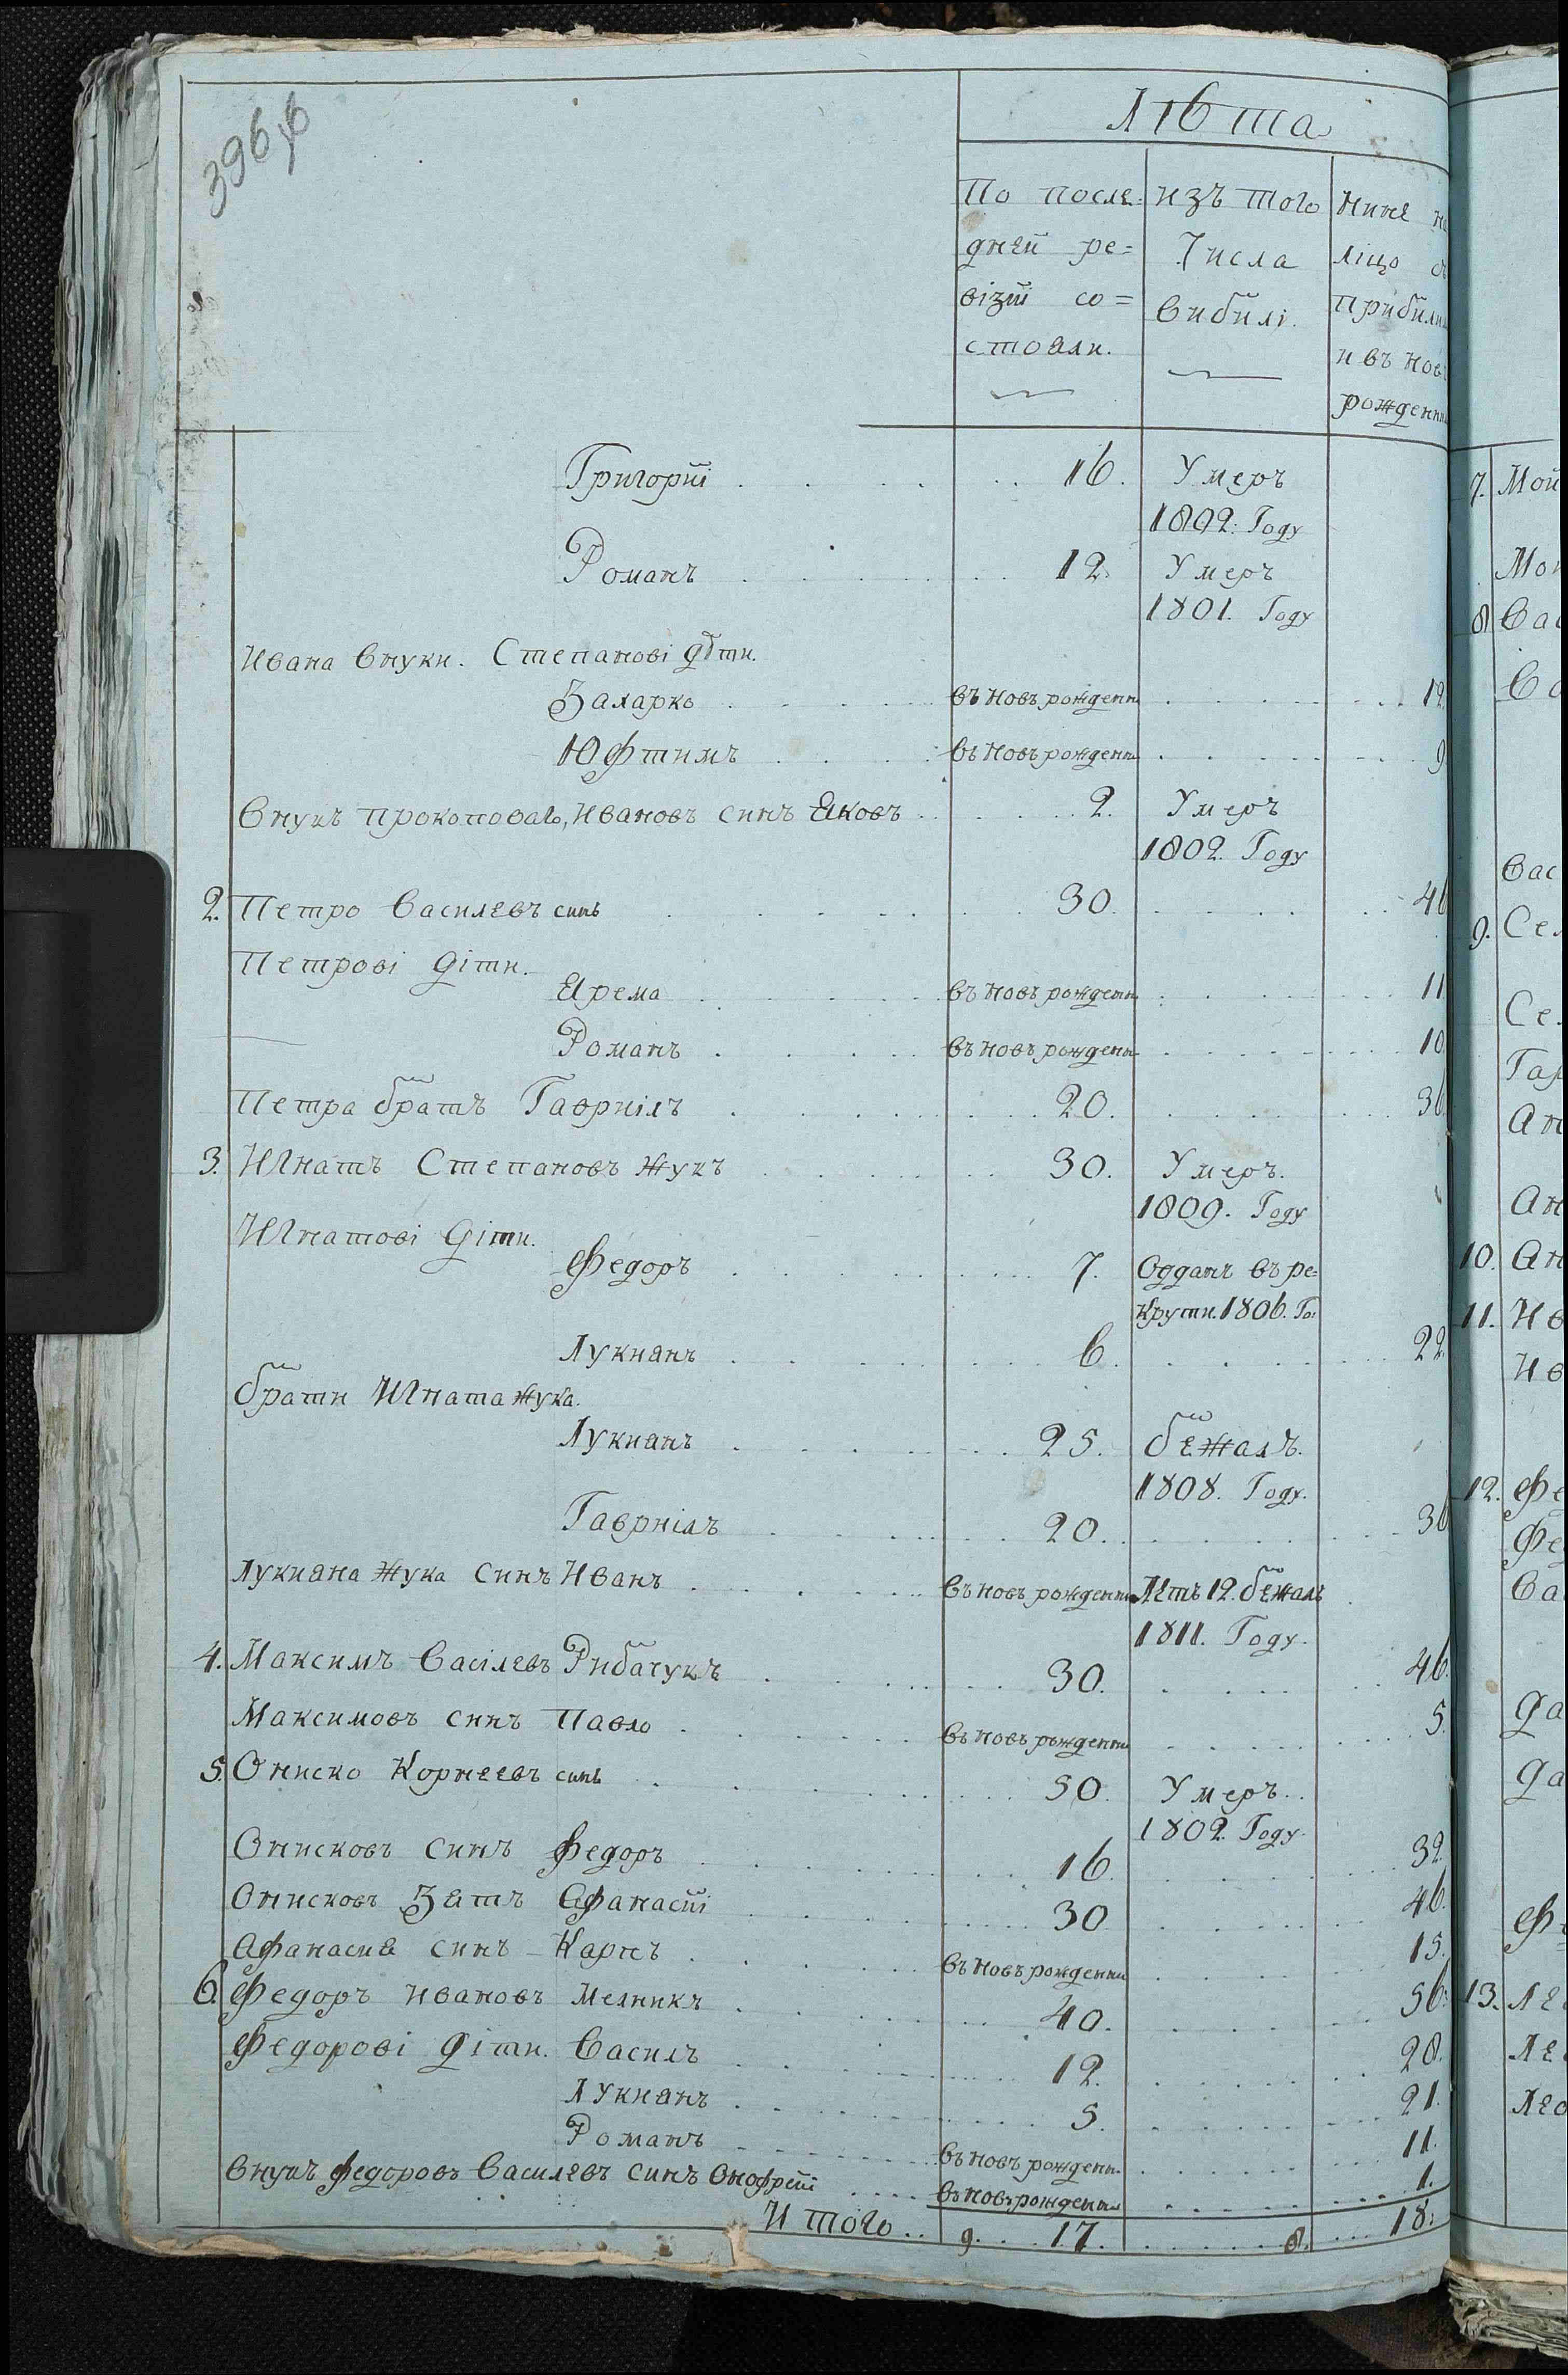 396 об
Лѣта
По после=
дней ре=
візіі со=
стояли.
изъ того
Числа
вибилі.
Нине на
ліцо съ
прибилы
и въ новъ
рожденны
Григорій 16. Умеръ
1802. Году
Романъ 12. Умеръ
1801. Году
Ивана внуки. Степанові дѣти.
Захарко въ новъ рожденн 12.
Юфтимъ въ новъ рожденн 9
Внукъ прокоповаго, Ивановъ синъ Яковъ 2. Умеръ
1802. Году
2. Петро Василевъ синъ 30. 46
Петрові діти.
Ярема въ новъ рожденн 11.
Романъ въ новъ рожденн 10.
Петра братъ Гавриілъ 20. 36.
3. Игнатъ Степановъ Жукъ 30. Умеръ.
1809. Году
Игнатові діти.
Федоръ 7. Отданъ въ ре=
крути. 1806. Го:
Лукиянъ 6. 22.
брати Игната Жука.
Лукианъ 25. бежалъ.
1808. Году.
Гавриілъ 20. 36
Лукияна Жука синъ Иванъ въ новъ рожденни Летъ 12. бежалъ
1811. Году.
4. Максимъ Васілевъ Рибачукъ 30. 46.
Максимовъ синъ Павло въ новъ рожденни 5.
5. Ониско Корнеевъ синъ 50. Умеръ.
1802. Году.
Онисковъ синъ Федоръ 16. 32.
Онисковъ Зятъ Афанасій 30. 46.
Афанасия синъ Карпъ въ новъ рожденни 15.
6. Федоръ Ивановъ Мелникъ 40. 56.
Федорові діти. Василъ 12. 28.
Лукиянъ 5. 21.
Романъ въ новъ рожденн 11.
Внукъ Федоровъ Василевъ синъ Онофрей въ новъ рожденн 1.
И того 9. 17. 8. 18.
7. Мой
8 Вас
Вас
9. Се
Се
Га
Ан
10. Ан
11. Ив
Ив
12. Фе
Фе
Ва
Да
Да
13. Ле
Ле
Лео